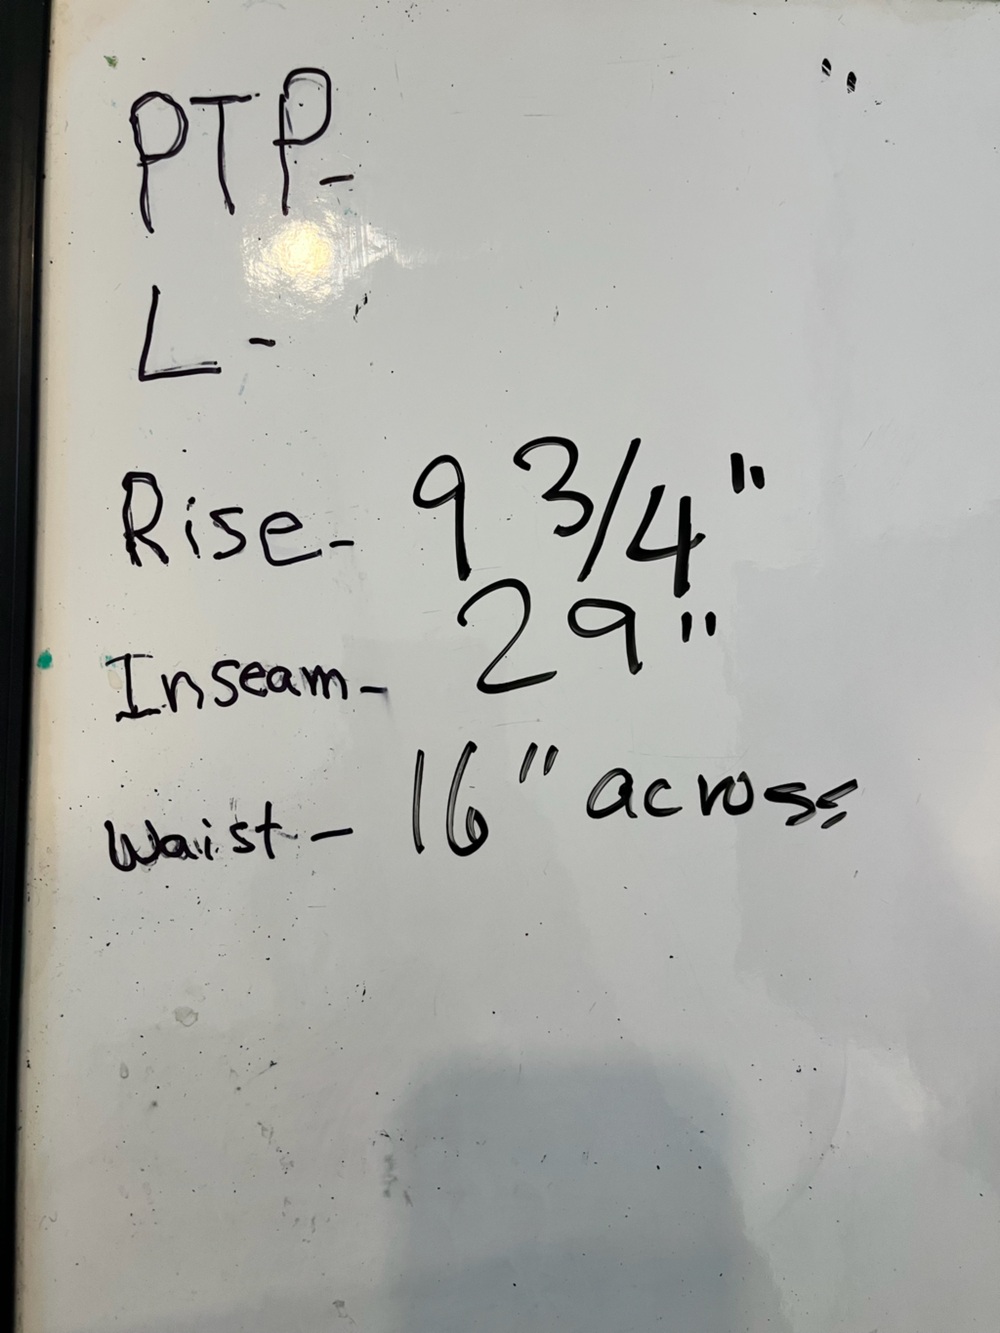 PTP-
"
L-
Rise- 9 3/4"
Inseam- 29"
Waist- 16" across